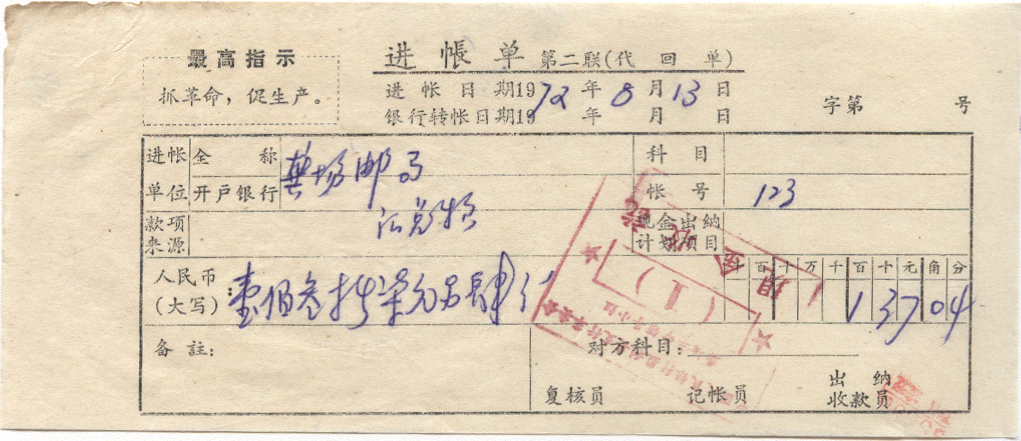 最高指示
抓革命，促生产。
进帐单 第二联(代回单)
进帐日期1972年8月13日
银行转帐日期19 年 月 日
字第 号
进帐单位 全称 邮局
科目
开户银行
帐号 123
款项来源
现金出纳计划项目
人民币(大写): 壹佰叁拾柒元另肆分
千百十万千百十元角分
13704
备註:
对方科目:
复核员 记帐员 出纳收款员